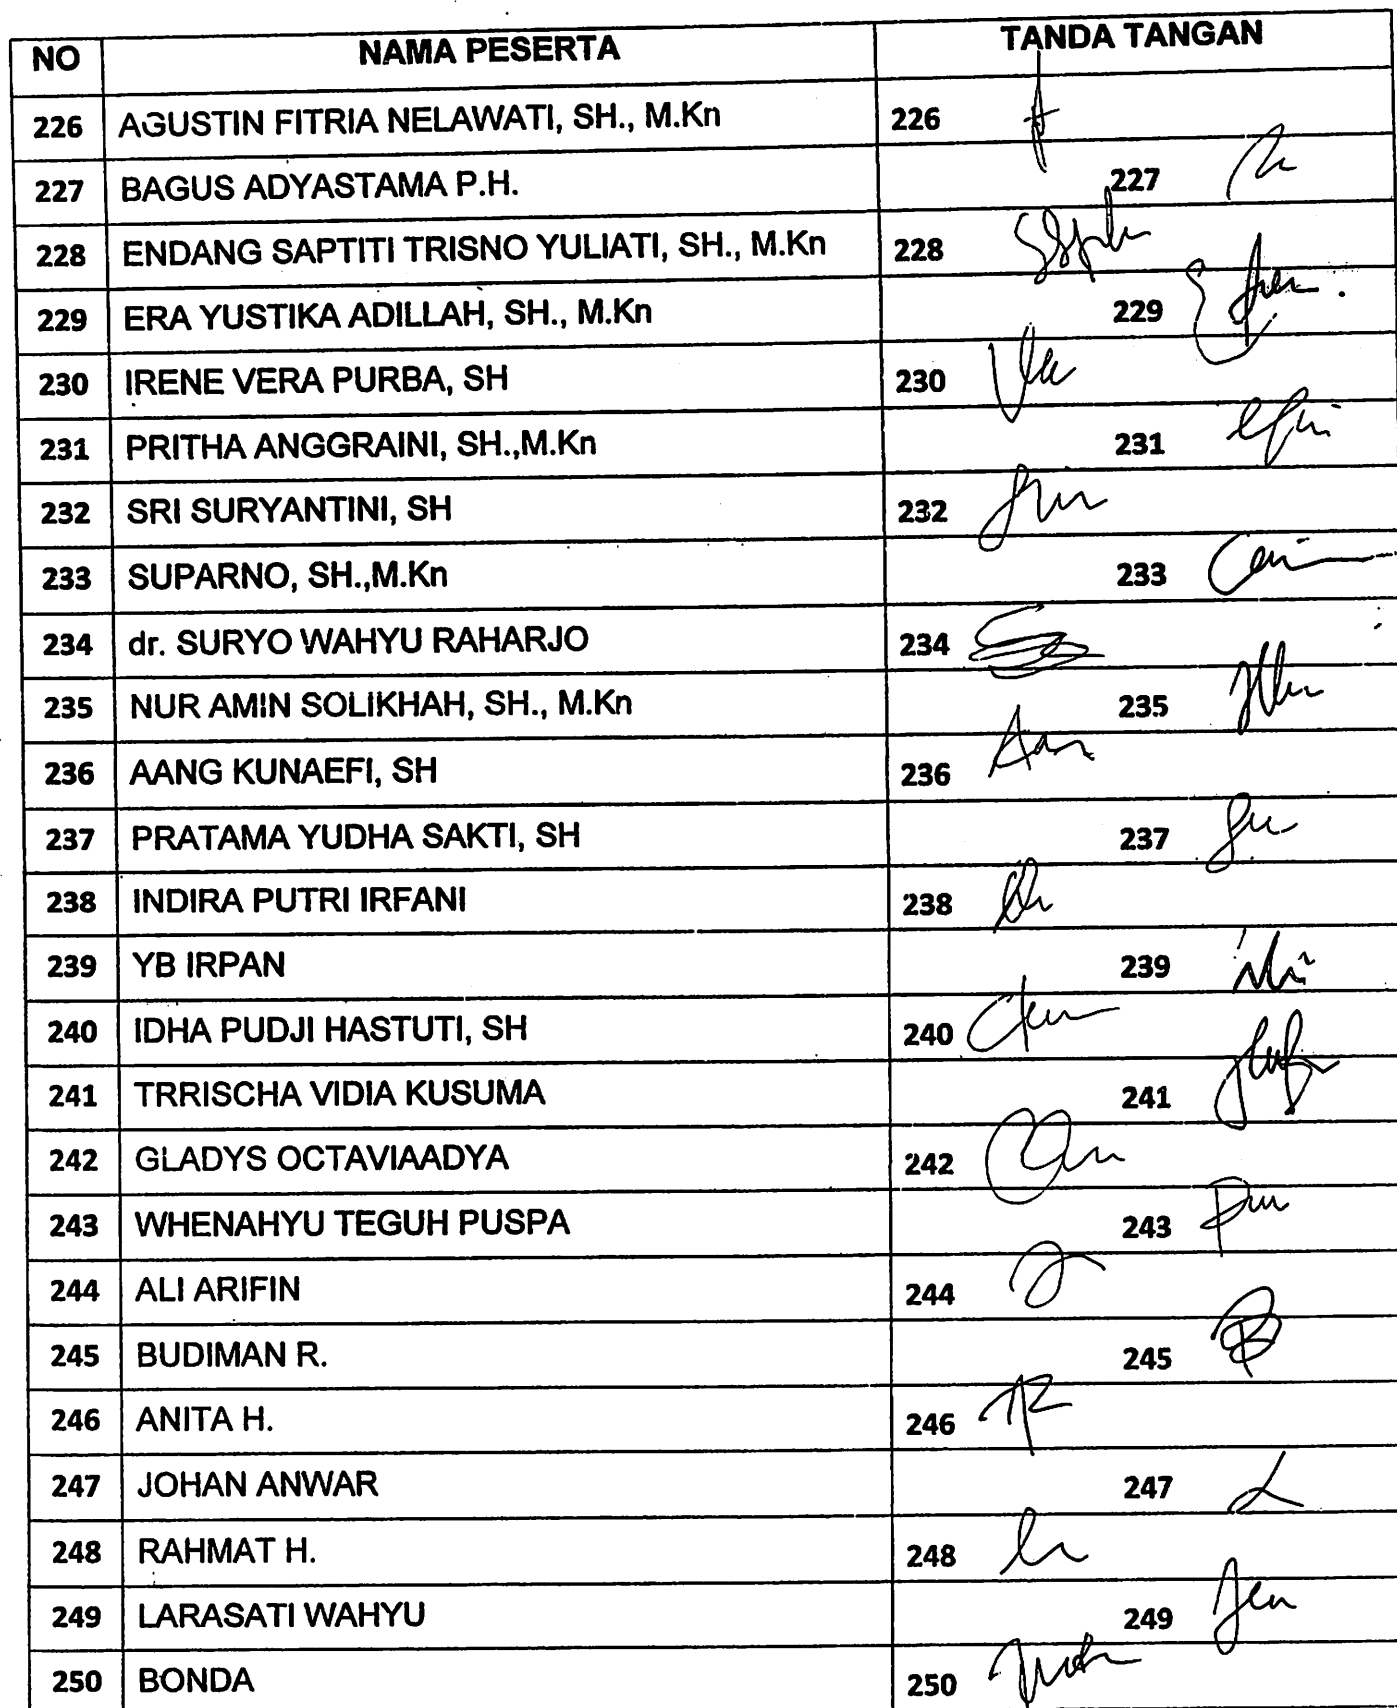 NO NAMA PESERTA TANDA TANGAN
226 AGUSTIN FITRIA NELAWATI, SH., M.Kn 226
227 BAGUS ADYASTAMA P.H. 227
228 ENDANG SAPTITI TRISNO YULIATI, SH., M.Kn 228
229 ERA YUSTIKA ADILLAH, SH., M.Kn 229
230 IRENE VERA PURBA, SH 230
231 PRITHA ANGGRAINI, SH.,M.Kn 231
232 SRI SURYANTINI, SH 232
233 SUPARNO, SH.,M.Kn 233
234 dr. SURYO WAHYU RAHARJO 234
235 NUR AMIN SOLIKHAH, SH., M.Kn 235
236 AANG KUNAEFI, SH 236
237 PRATAMA YUDHA SAKTI, SH 237
238 INDIRA PUTRI IRFANI 238
239 YB IRPAN 239
240 IDHA PUDJI HASTUTI, SH 240
241 TRRISCHA VIDIA KUSUMA 241
242 GLADYS OCTAVIAADYA 242
243 WHENAHYU TEGUH PUSPA 243
244 ALI ARIFIN 244
245 BUDIMAN R. 245
246 ANITA H. 246
247 JOHAN ANWAR 247
248 RAHMAT H. 248
249 LARASATI WAHYU 249
250 BONDA 250